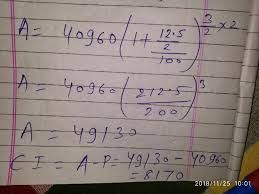 A = 40960 (1 + 12.5/2/100)^3/2 × 2
A = 40960 (212.5/200)^3
A = 49130
CI = A-P = 49130 - 40960
= 8170
2018/11/25 10:01